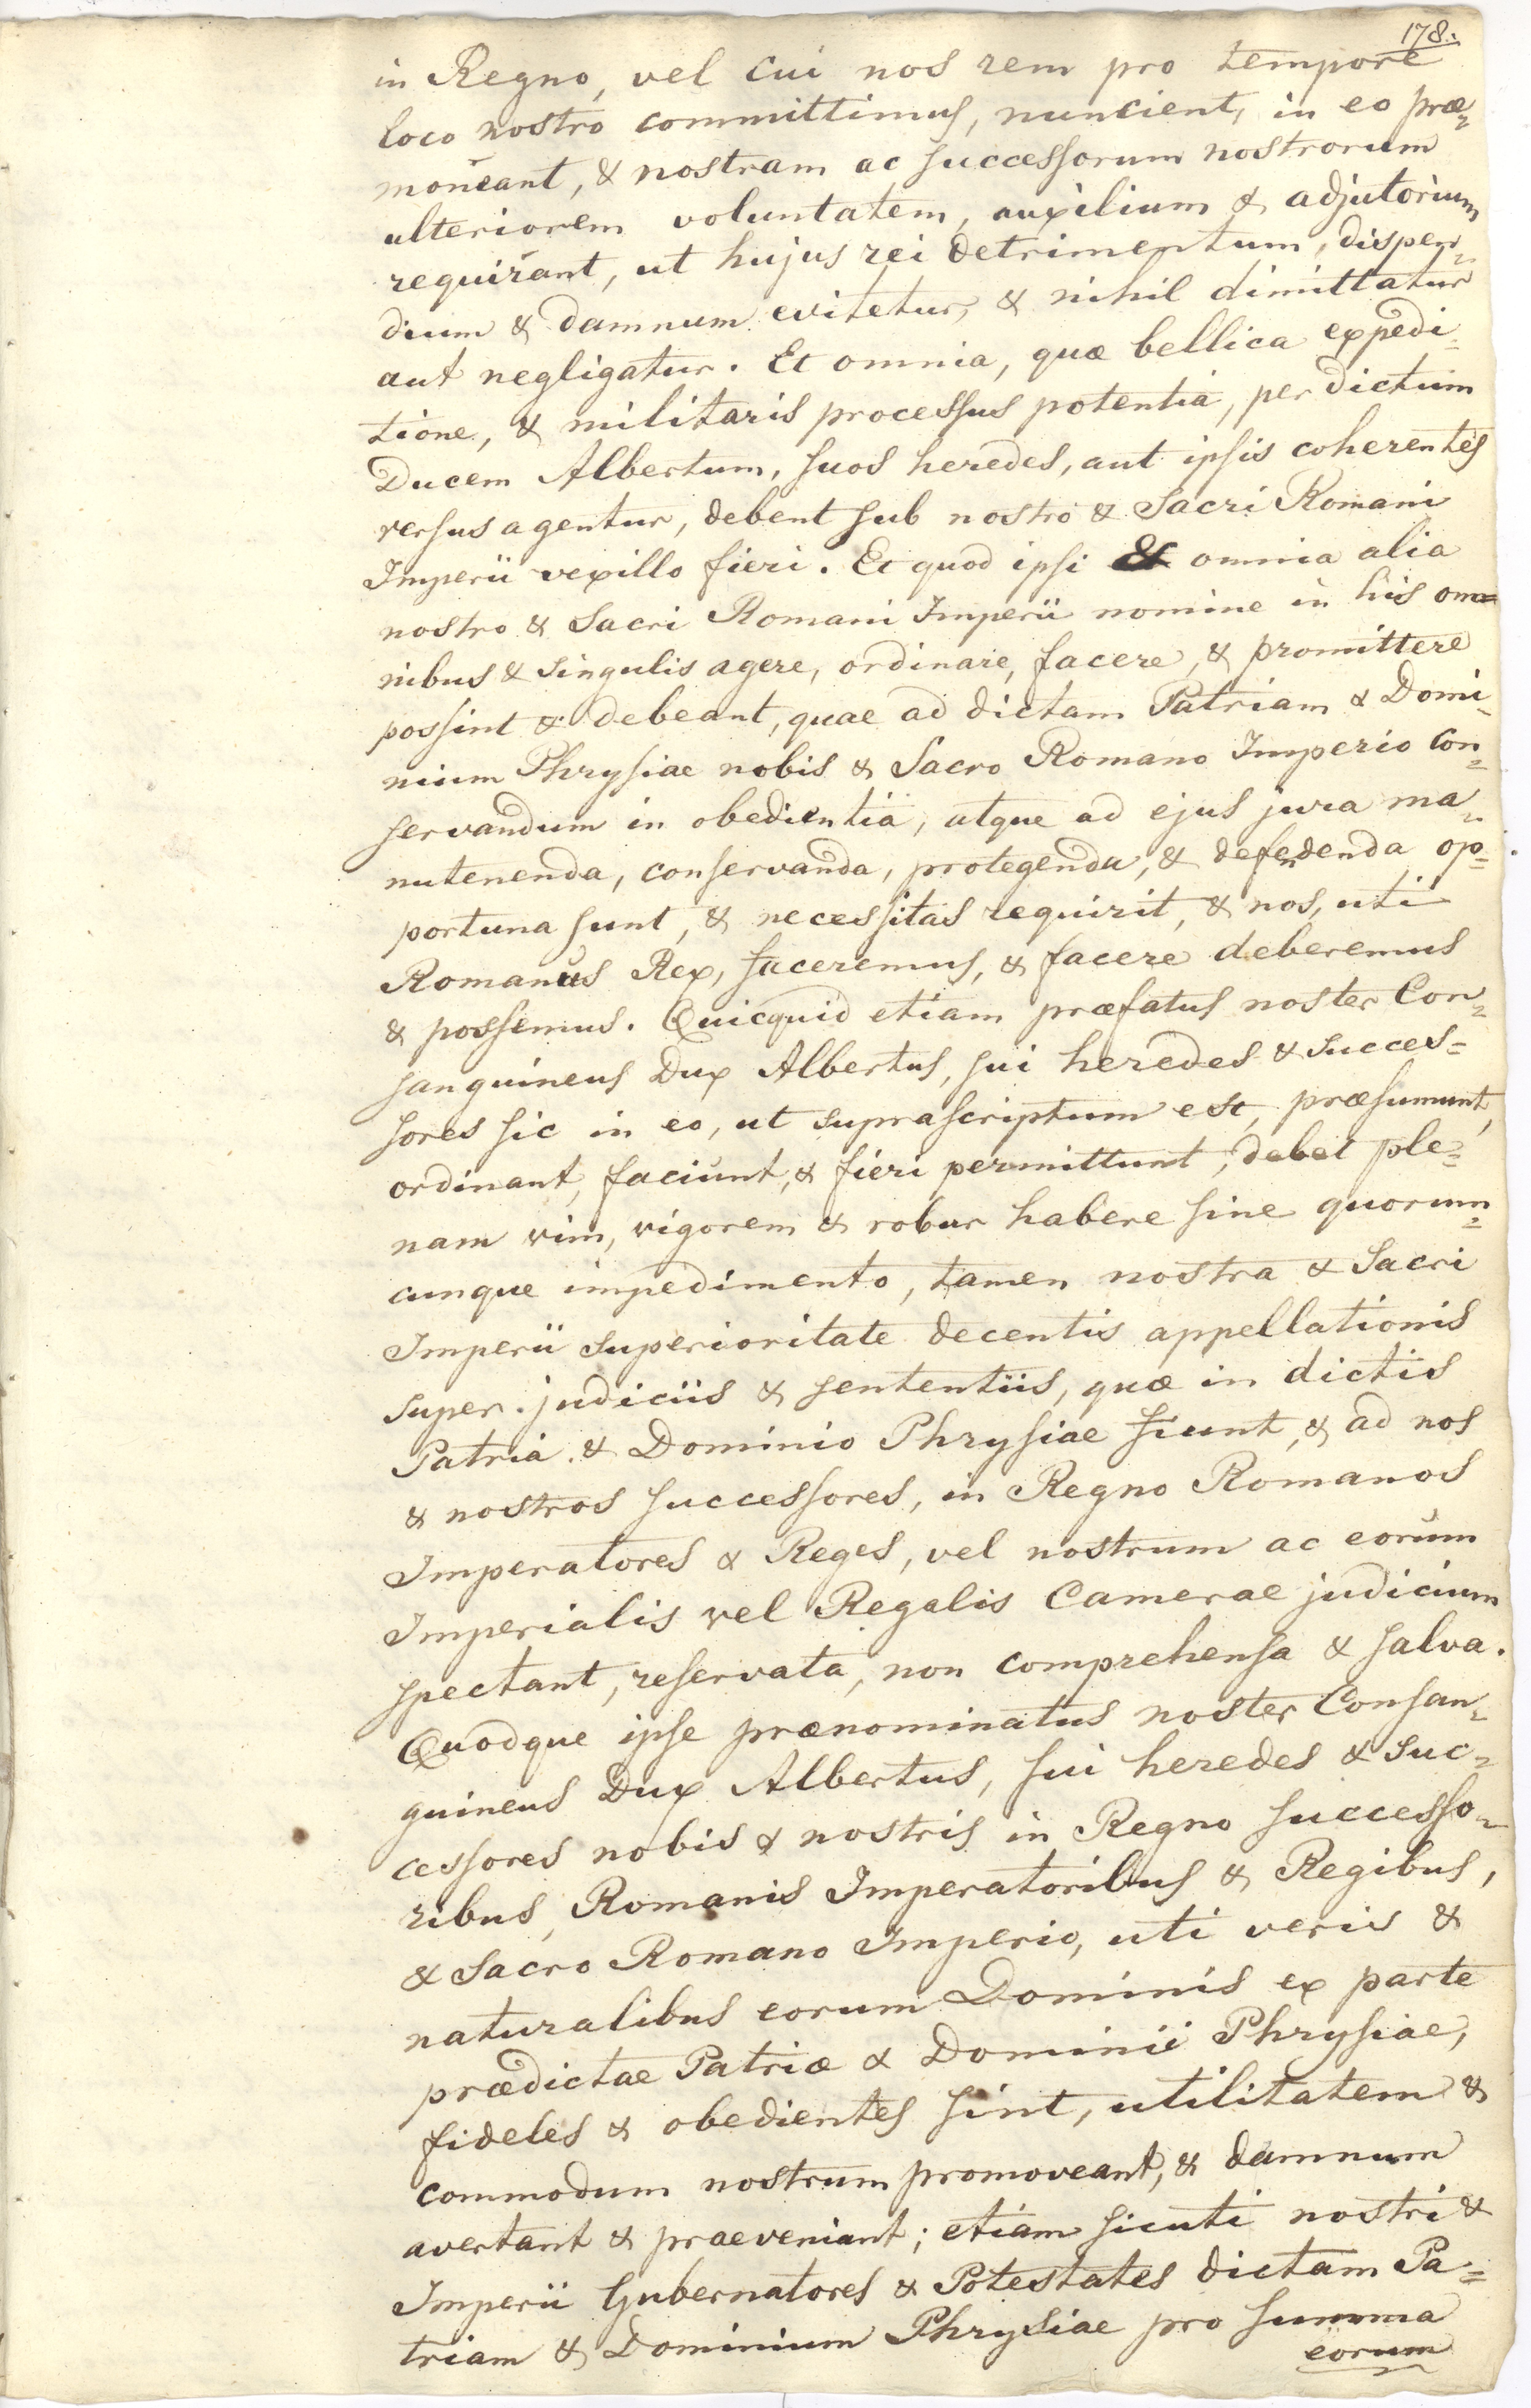 178.
in Regno, vel cui nos rem pro tempore
loco nostro committimus, nuncient, in eo præ=
moneant, & nostram ac successorum nostrorum
ulteriorem voluntatem, auxilium & adjutorium
requirant, ut hujus rei detrimentum, dispen=
dium & damnum evitetur, & nihil dimittatur
aut negligatur. Et omnia, quæ bellica expedi=
tione, & militaris processus potentia, per dictum
Ducem Albertum, suos heredes, aut ipsis coherentes
versus agentur, debent sub nostro & Sacri Romani
Imperii vexillo fieri. Et quod ipsi & omnia alia
nostro & Sacri Romani Imperii nomine in his om=
nibus & singulis agere, ordinare, facere, & promittere
possint & debeant, quae ad dictam Patriam & Domi=
nium Phrysiae nobis & Sacro Romano Imperio con=
servandum in obedientia, atque ad ejus jura ma=
nutenenda, conservanda, protegenda, & defendenda op=
portuna sunt, & necessitas requirit, & nos, uti
Romanus Rex, faceremus, & facere deberemus
& possemus. Quicquid etiam præfatus noster Con=
sanguineus Dux Albertus, sui heredes & succes=
sores sic in eo, ut suprascriptum est, præsumunt,
ordinant, faciunt, & fieri permittunt, debet ple=
nam vim, vigorem & robur habere sine quorum=
cunque impedimento, tamen nostra & Sacri
Imperii superioritate decentis appellationis
super judiciis & sententiis, quæ in dictis
Patria & Dominio Phrysiae fiunt, & ad nos
& nostros successores, in Regno Romanos
Imperatores & Reges, vel nostrum ac eorum
Imperialis vel Regalis Camerae judicium
spectant, reservata, non comprehensa & salva.
Quodque ipse prænominatus noster Consan=
guineus Dux Albertus, sui heredes & suc=
cessores nobis & nostris in Regno successo=
ribus, Romanis Imperatoribus & Regibus,
& Sacro Romano Imperio, uti veris &
naturalibus eorum Dominis ex parte
prædictae Patriæ & Dominii Phrysiae,
fideles & obedientes sint, utilitatem &
commodum nostrum promoveant, & damnum
avertant & praeveniant; etiam sicuti nostri &
Imperii Gubernatores & Potestates dictam Pa=
triam & Dominium Phrysiae pro summa
eorum